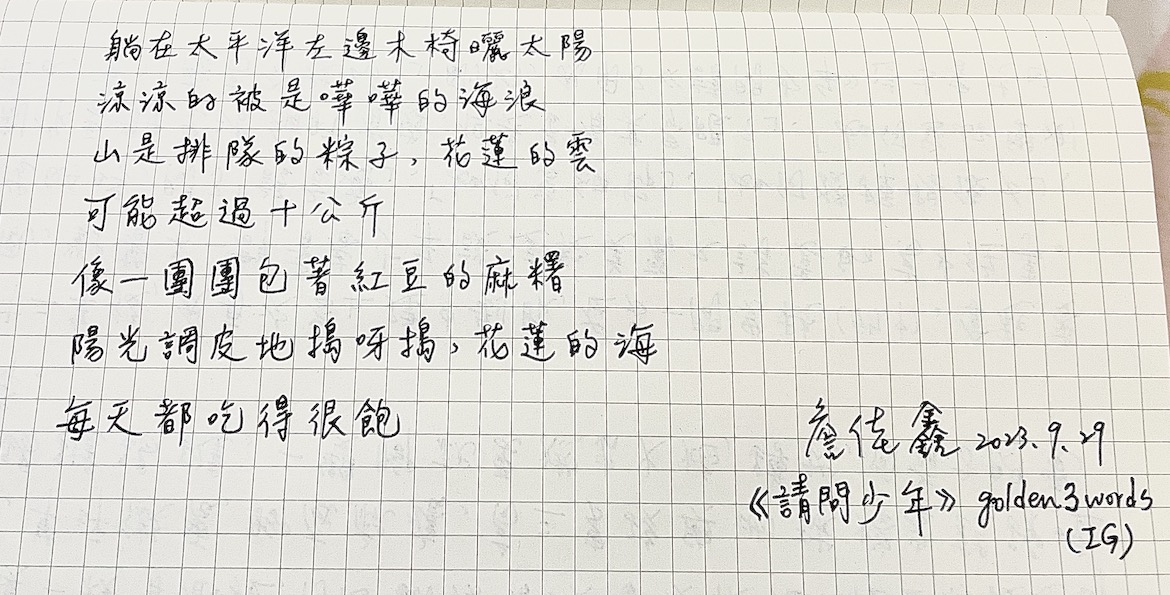 躺在太平洋左邊木椅曬太陽
涼涼的被是嘩嘩的海浪
山是排隊的粽子,花蓮的雲
可能超過十公斤
像一團團包著紅豆的麻糬
陽光調皮地搗呀搗,花蓮的海
每天都吃得很飽
詹佳鑫 2023.9.29
《請問少年》 golden3words
(IG)